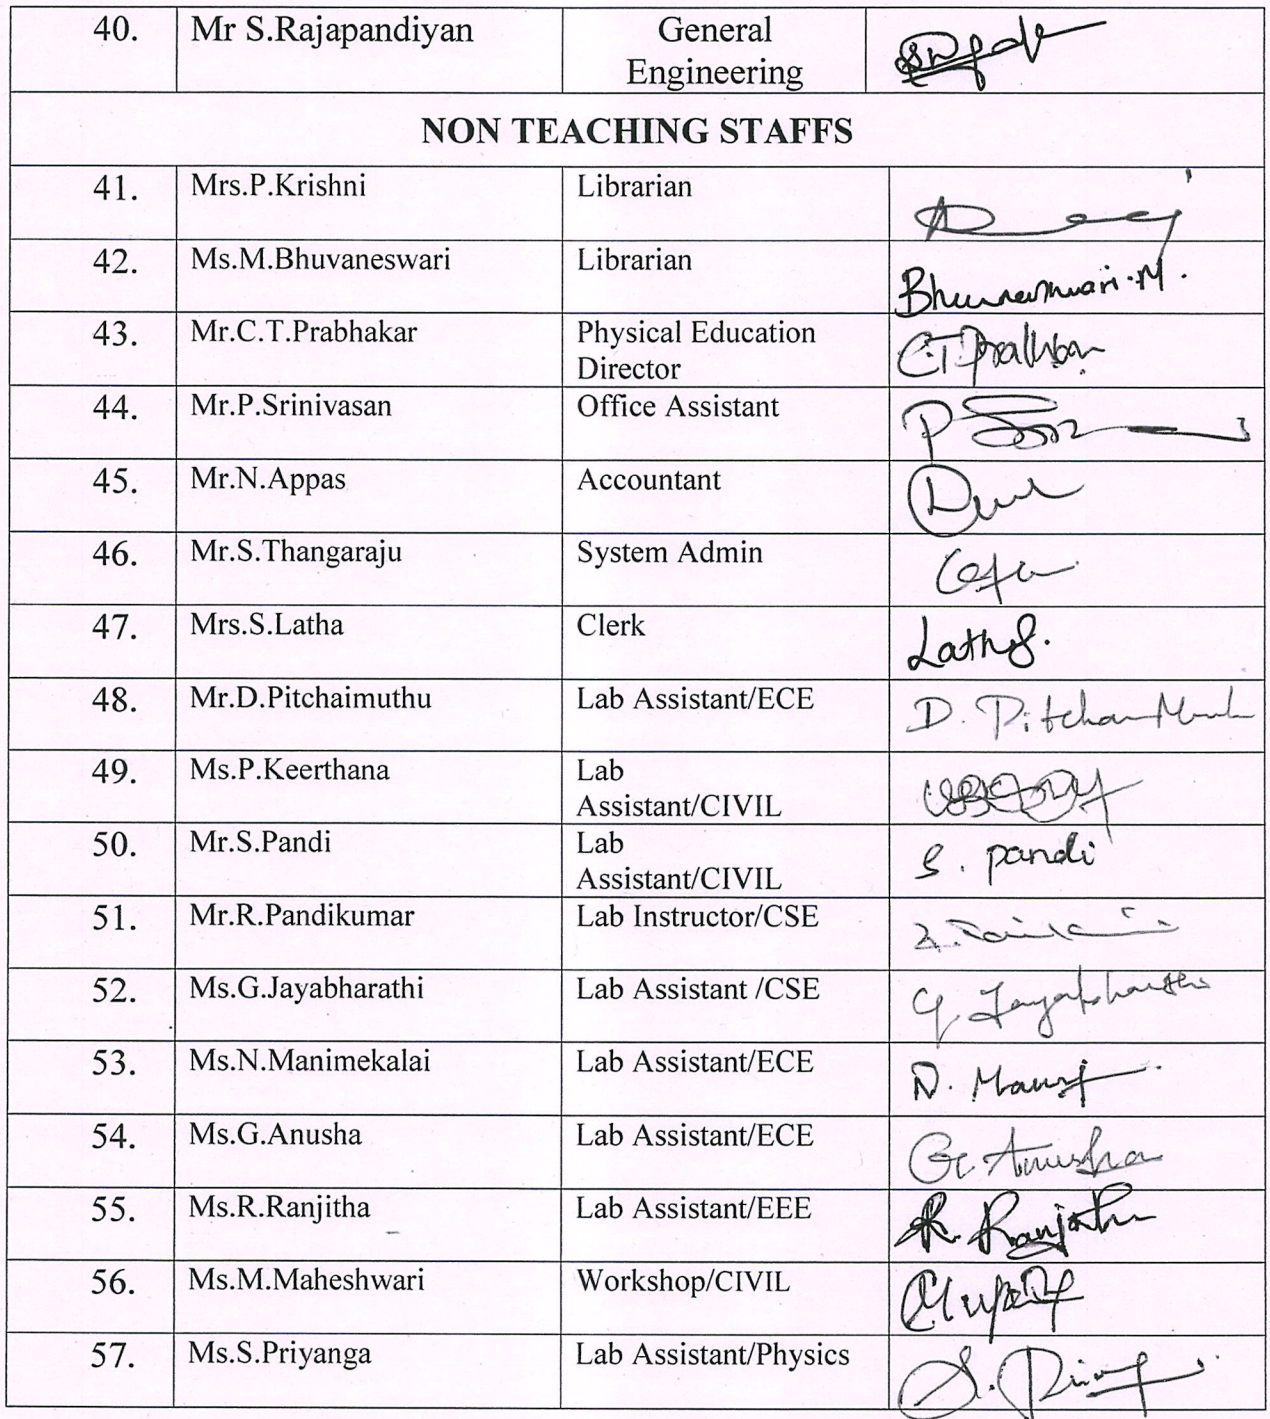 40. Mr S.Rajapandiyan General
Engineering
NON TEACHING STAFFS
41. Mrs.P.Krishni Librarian
42. Ms.M.Bhuvaneswari Librarian Bhuvaneshwari.M.
43. Mr.C.T.Prabhakar Physical Education
Director
44. Mr.P.Srinivasan Office Assistant
45. Mr.N.Appas Accountant
46. Mr.S.Thangaraju System Admin
47. Mrs.S.Latha Clerk
48. Mr.D.Pitchaimuthu Lab Assistant/ECE
49. Ms.P.Keerthana Lab
Assistant/CIVIL
50. Mr.S.Pandi Lab
Assistant/CIVIL S. pandi
51. Mr.R.Pandikumar Lab Instructor/CSE
52. Ms.G.Jayabharathi Lab Assistant /CSE G. Jayabharathi
53. Ms.N.Manimekalai Lab Assistant/ECE
54. Ms.G.Anusha Lab Assistant/ECE G. Anusha
55. Ms.R.Ranjitha Lab Assistant/EEE R. Ranjitha
56. Ms.M.Maheshwari Workshop/CIVIL
57. Ms.S.Priyanga Lab Assistant/Physics